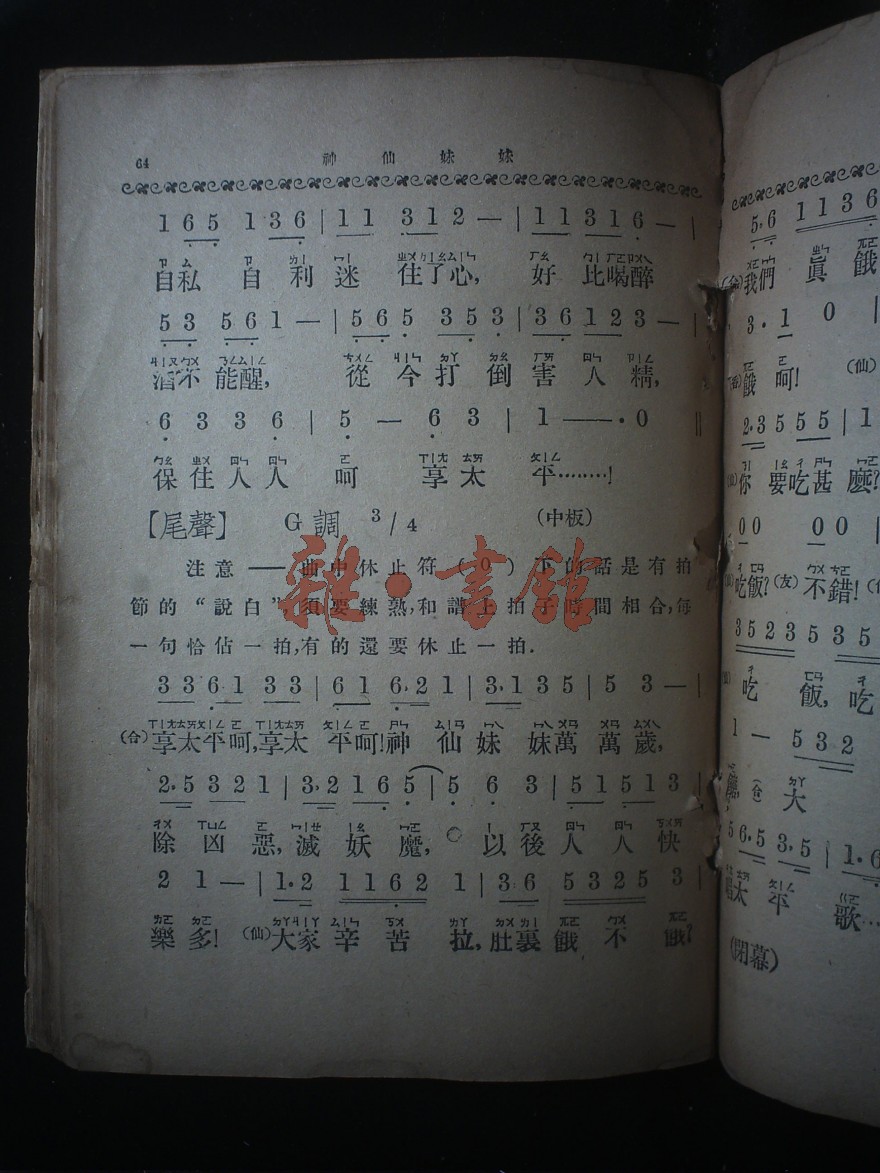 64 神仙妹妹
1 6 5 1 3 6 | 1 1 3 1 2 — | 1 1 3 1 6 — |
自私 自 利 迷 住了心, 好 比喝醉
5 3 5 6 1 — | 5 6 5 3 5 3 | 3 6 1 2 3 — |
酒不 能醒, 從 今 打 倒 害 人 精,
6 3 3 6 | 5 — 6 3 | 1 —— · 0 ||
保住人人 呵 享太 平………!
【尾聲】 G調 3/4 (中板)
注意——曲中休止符(0)下的話是有拍
節的“說白”須要練熟,和譜上拍子時間相合,每
一句恰佔一拍,有的還要休止一拍.
3 3 6·1 3 3 | 6 1 6·2 1 | 3·1 3 5 | 5 3 — |
(合)享太平呵,享太平呵!神仙妹妹萬萬歲,
2·5 3 2 1 | 3·2 1 6 5 | 5 6 3 | 5 1 5 1 3 |
除凶惡,滅妖魔, 以後人人快
2 1 — | 1·2 1 1 6 2 1 | 3·6 5 3 2 5 3 |
樂多! (仙)大家辛苦拉,肚裏餓不餓?
5·6 1 1 3 6
我們 眞 餓
3·1 0 |
餓呵! (仙)
2·3 5 5 5 | 1
你要吃甚麼?
0 0 0 0 |
吃飯? (友) 不錯!
3 5 2 3 5 3 5
吃 飯, 吃
1 — 5 3 2
大
5 6·5 3·5 | 1·6
太平 歌…
(閉幕)
雜·書館